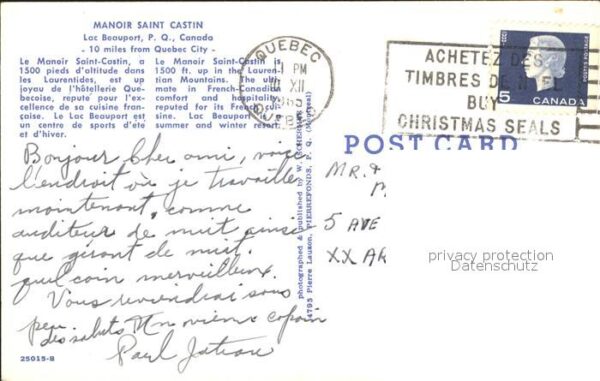 MANOIR SAINT CASTIN
Lac Beauport, P. Q., Canada
- 10 miles from Quebec City -
Le Manoir Saint-Castin, a
1500 pieds d'altitude dans
les Laurentides, est un
joyau de l'hôtellerie Qué-
becoise, repute pour l'ex-
cellence de sa cuisine fran-
çaise. Le Lac Beauport est
un centre de sports d'été
et d'hiver.
Le Manoir Saint-Castin is
1500 ft. up in the Lauren-
tian Mountains. The ulti-
mate in French-Canadian
comfort and hospitality
reputed for its French cui-
sine. Lac Beauport
summer and winter resort.
QUEBEC
PM
XII
QUEBEC
ACHETEZ DES
TIMBRES DE NOEL
BUY
CHRISTMAS SEALS
5
CANADA
POSTES POSTAGE
POST CARD
photographed & published by W.
4795 Pierre Lauzon, PIERREFONDS, P. Q. (Montreal)
Bonjour Cher ami, voici
l'endroit où je travaille
maintenant, comme
auditeur de nuit ainsi
que gérant de nuit.
quel coin merveilleux.
Vous reviendrai sous
peu.
des saluts Un vieux copain
Paul
MR. &
5 AVE
XX AR
privacy protection
Datenschutz
25015-B